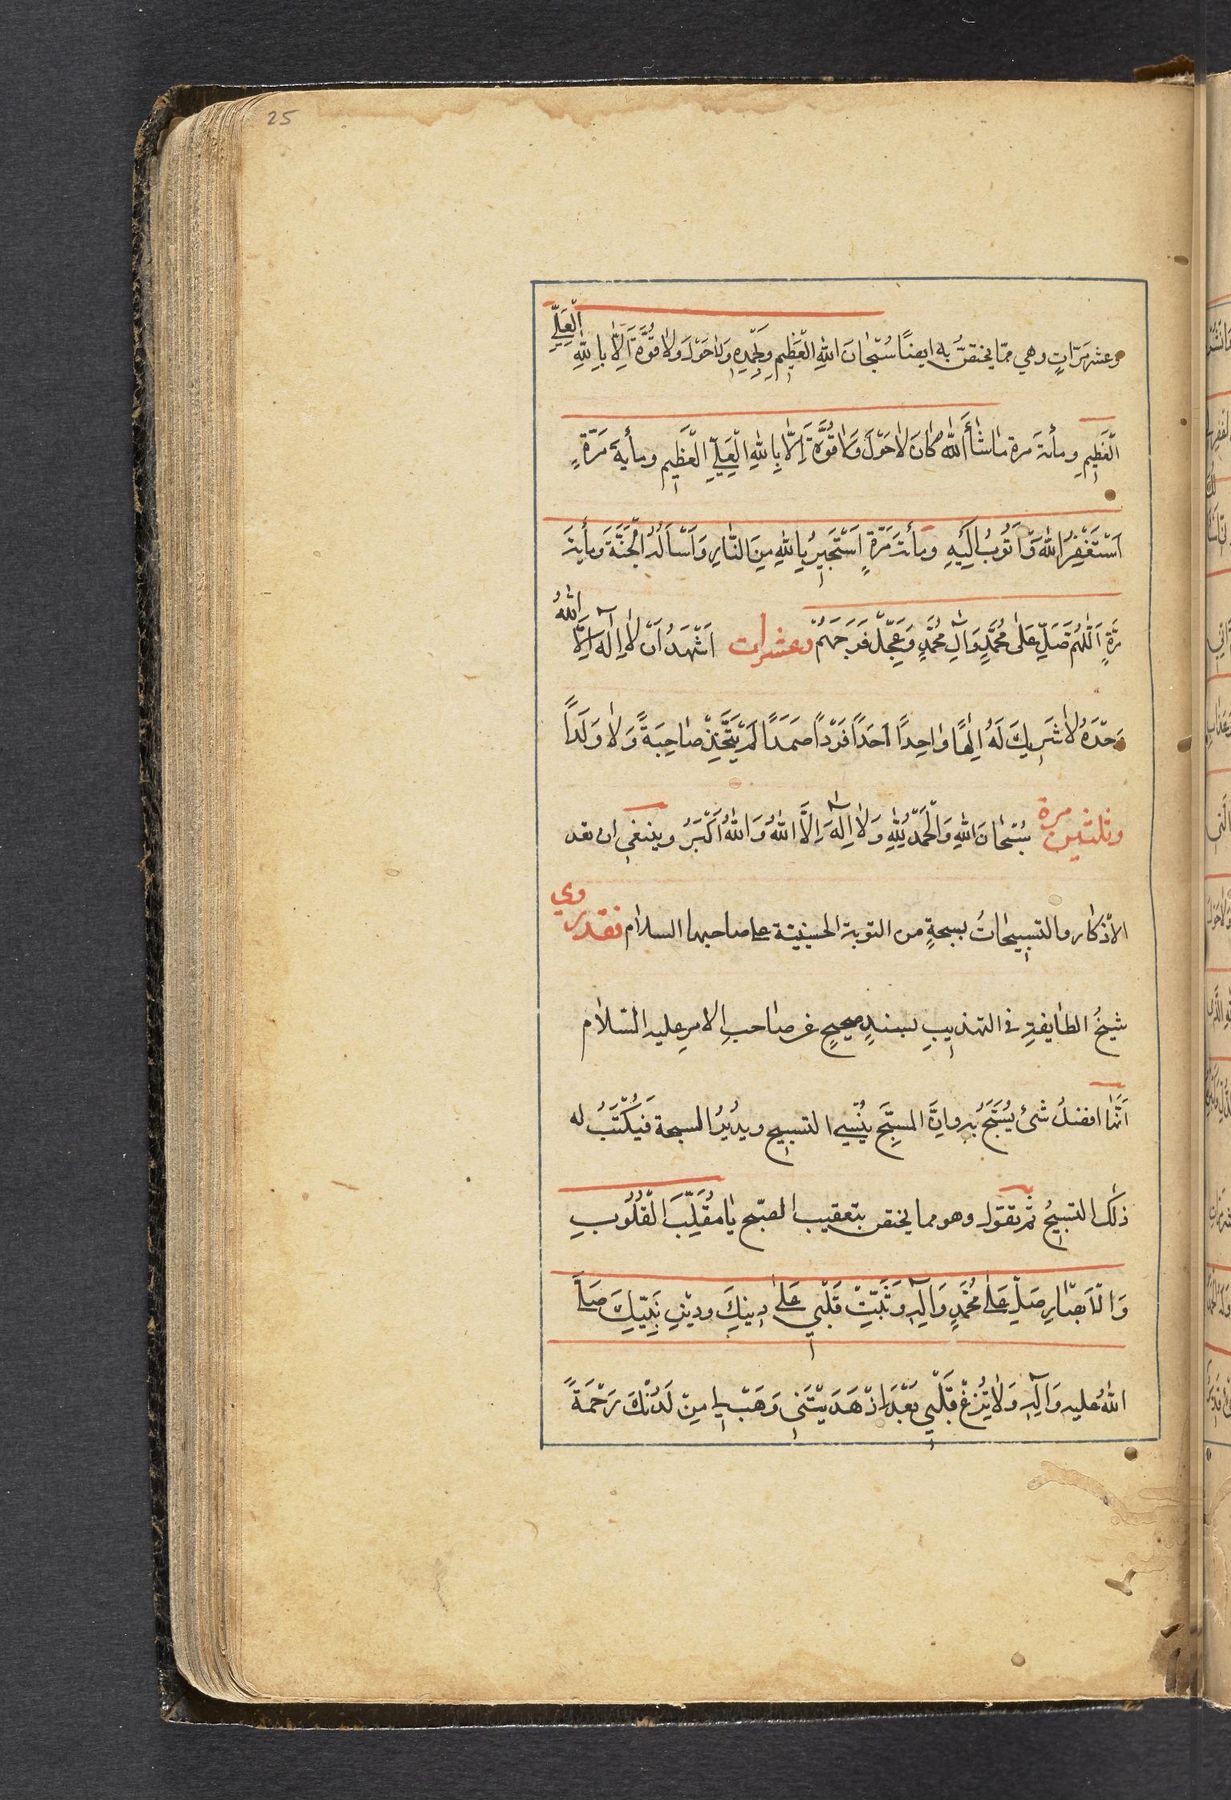 25
وعشر مَرّاتٍ وهي ممّا يختصّ به ايضاً سُبْحانَ اللهِ الْعَظِيمِ وَبِحَمْدِهِ وَلا حَوْلَ وَلا قُوَّةَ اِلّا بِاللهِ الْعَلِيِّ
الْعَظِيمِ ومأئة مرة ماشاءَ اللهُ كانَ لا حَوْلَ وَلا قُوَّةَ اِلّا بِاللهِ الْعَلِيِّ الْعَظِيمِ ومأية مَرّةٍ
اَسْتَغْفِرُ اللهَ وَاَتُوبُ اِلَيْهِ ومأئة مَرّةٍ اَسْتَجِيرُ بِاللهِ مِنَ النّارِ وَاَسْاَلُهُ الْجَنَّةَ ومأية
مَرّةٍ اَللّهُمَّ صَلِّ عَلى مُحَمَّدٍ وَآلِ مُحَمَّدٍ وَعَجِّلْ فَرَجَهُمْ وعشرات اَشْهَدُ اَنْ لا اِلهَ اِلَّا اللهُ
وَحْدَهُ لا شَرِيكَ لَهُ اِلهاً واحِداً اَحَداً فَرْداً صَمَداً لَمْ يَتَّخِذْ صاحِبَةً وَلا وَلَداً
وثلثين مرة سُبْحانَ اللهِ وَالْحَمْدُ لِلّهِ وَلا اِلهَ اِلَّا اللهُ وَاللهُ اَكْبَرُ وينبغي ان تعد
الاذكار والتسبيحاتُ بسبحةٍ من التوبة الحسينيّة على صاحبها السلام فقد روي
شيخُ الطايفةِ في التهذيبِ بسندٍ صحيحٍ عن صاحبِ الامرِ عليه السّلام
اَنّها افضلُ شئ يُسَبَّحُ به وانَّ المسبّحَ يُنْسِي التسبيح ويُديرُ السبحة فَيُكْتَبُ له
ذلك التسبيحُ ثم تقول وهو مما يختص بتعقيب الصّبح يا مُقَلِّبَ الْقُلُوبِ
وَالْاَبْصارِ صَلِّ عَلى مُحَمَّدٍ وَآلِهِ وَثَبِّتْ قَلْبِي عَلى دِينِكَ ودِيْنِ نَبِيِّكَ صَلَّى
اللهُ عليه وَآلِهِ وَلا تُزِغْ قَلْبِي بَعْدَ اِذْ هَدَيْتَنِي وَهَبْ لِي مِنْ لَدُنْكَ رَحْمَةً